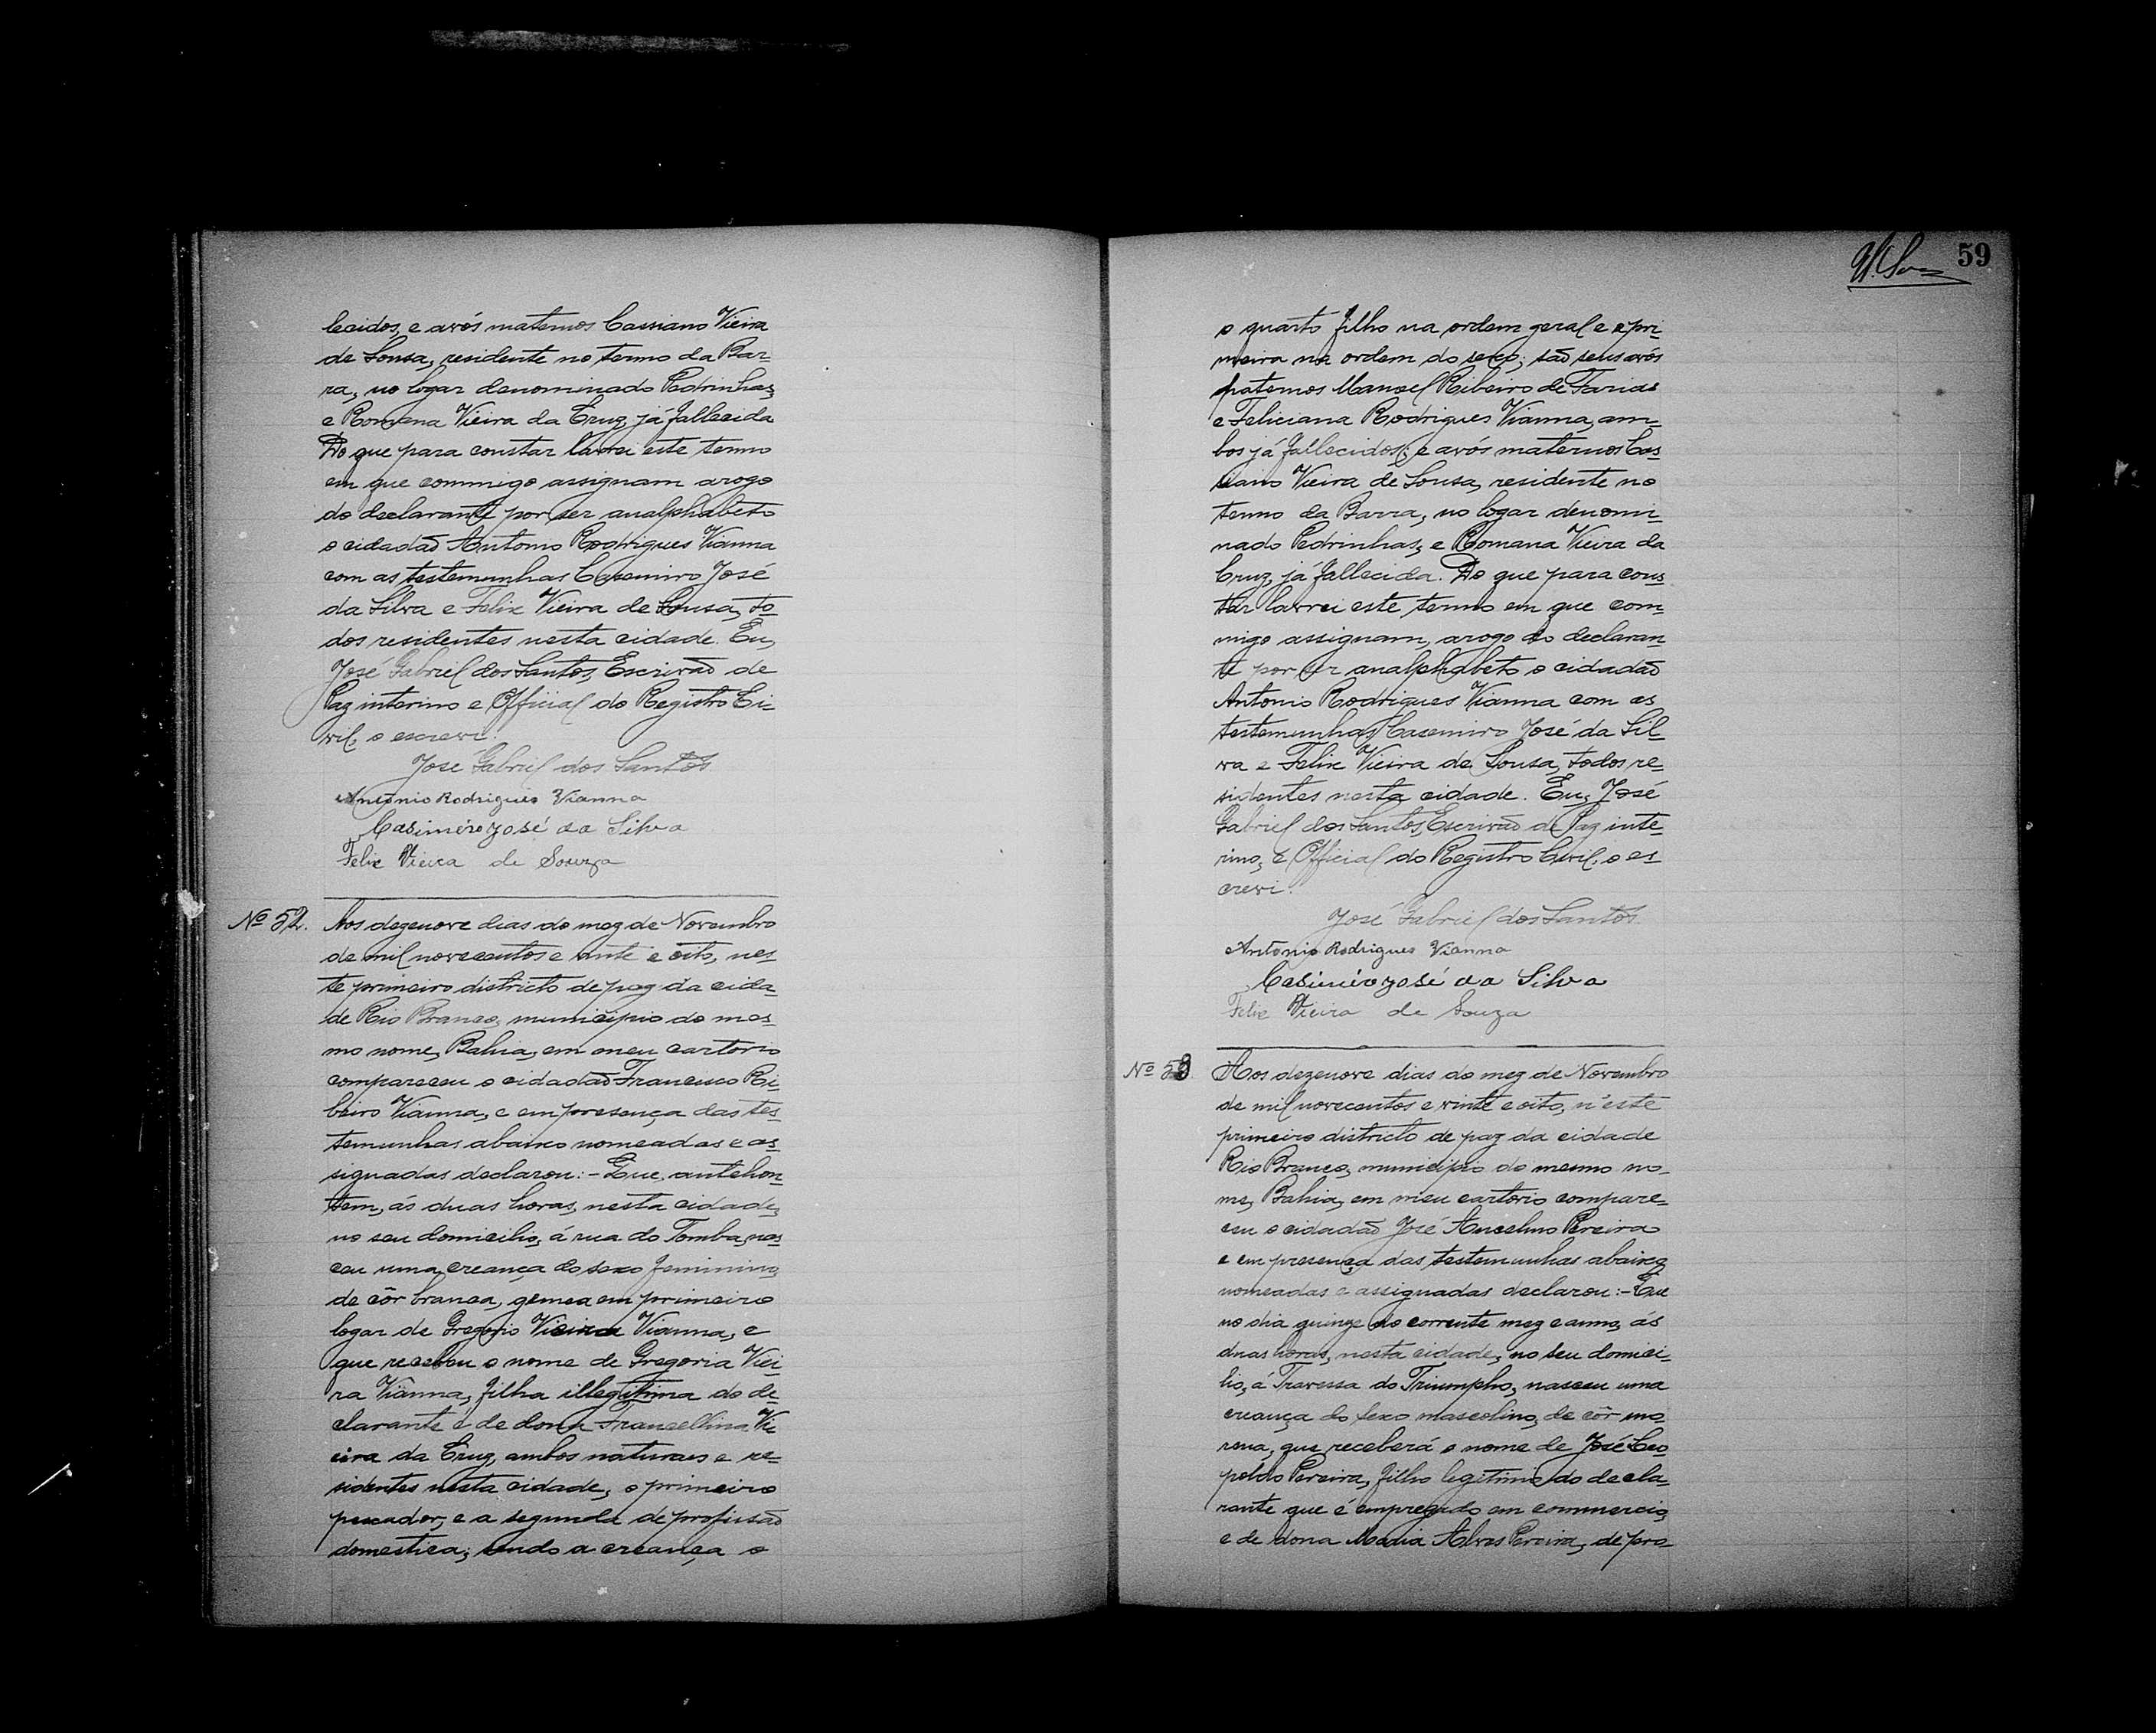 lecidos, e avós maternos Cassiano Vieira
de Sousa, residente no termo da Bar-
ra, no logar denominado Pedrinhas,
e Romana Vieira da Cruz, já fallecida
Do que para constar lavrei este termo
em que commigo assignam arogo
do declarante por ser analphabeto
o cidadão Antonio Rodrigues Vianna
com as testemunhas Casemiro José
da Silva e Felix Vieira de Sousa, to-
dos residentes nesta cidade. Eu,
José Gabriel dos Santos, Escrivão de
Paz interino e Official do Registro Ci-
vil, o escrevi.
José Gabriel dos Santos
Antonio Rodrigues Vianna
Casimiro José da Silva
Felix Vieira de Souza
Nº 52. Aos dezenove dias do mez de Novembro
de mil novecentos e vinte e oito, nes-
te primeiro districto de paz da cida-
de Rio Branco, municipio do mes-
mo nome, Bahia, em meu cartorio
compareceu o cidadão Francisco Ri-
beiro Vianna, e em presença das tes-
temunhas abaixo nomeadas e as-
signadas declarou:- Que, antehon-
tem, ás duas horas, nesta cidade,
no seu domicilio, á rua do Tomba, nas-
ceu uma creança do sexo feminino,
de côr branca, gemea em primeiro
logar de Gregorio Vieira Vianna, e
que recebeu o nome de Gregoria Viei-
ra Vianna, filha illegitima do de-
clarante e de dona Francellina Vi-
eira da Cruz, ambos naturaes e re-
sidentes nesta cidade, o primeiro
pescador, e a segunda de profissão
domestica; sendo a creança o
59
o quarto filho na ordem geral e a pri-
meira na ordem do sexo; são seus avós
paternos Manoel Ribeiro de Farias
e Feliciana Rodrigues Vianna, am-
bos já fallecidos; e avós maternos Cas-
siano Vieira de Sousa, residente no
termo da Barra, no logar denomi-
nado Pedrinhas, e Romana Vieira da
Cruz, já fallecida. Do que para cons-
tar lavrei este termo em que com-
migo assignam, arogo do declaran-
te por ser analphabeto o cidadão
Antonio Rodrigues Vianna com as
testemunhas Casemiro José da Sil-
va e Felix Vieira de Sousa, todos re-
sidentes nesta cidade. Eu, José
Gabriel dos Santos, Escrivão de Paz inte-
rino, e Official do Registro Civil, o es-
crevi.
José Gabriel dos Santos.
Antonio Rodrigues Vianna
Casimiro José da Silva
Felix Vieira de Souza
Nº 53 Aos dezenove dias do mez de Novembro
de mil novecentos e vinte e oito, n'este
primeiro districto de paz da cidade
Rio Branco, municipio do mesmo no-
me, Bahia, em meu cartorio compare-
ceu o cidadão José Ancelmo Pereira
e em presença das testemunhas abaixo
nomeadas e assignadas declarou:- Que
no dia quinze do corrente mez e anno, ás
duas horas, nesta cidade, no seu domici-
lio, á Travessa do Triumpho, nasceu uma
creança do sexo mascolino, de côr mo-
rena, que receberá o nome de José Leo-
poldo Pereira, filho legitimo do decla-
rante que é empregado em commercio,
e de dona Maria Alves Pereira, de pro-